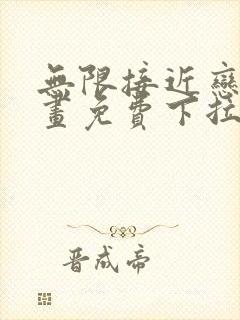 無限接近戀
畫免費下拉
晋成帝